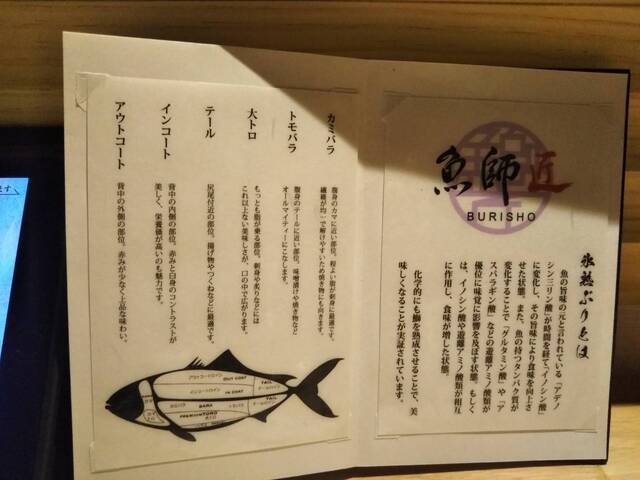 魚師 匠
BURISHO
氷熟ぶりとは
魚の旨味の元と言われている「アデノ
シン三リン酸」が時間を経て、「イノシン酸」
に変化し、その旨味により食味を向上さ
せた状態。また、魚の持つタンパク質が
変化することで「グルタミン酸」や「ア
スパラギン酸」などの遊離アミノ酸類が
優位に味覚に影響を及ぼす状態。もしく
は、イノシン酸や遊離アミノ酸類が相互
に作用し、食味が増した状態。
化学的にも鰤を熟成させることで、美
味しくなることが実証されています。
カミバラ
腹身のカマに近い部位。程よい脂が刺身に最適です。
繊維が均一で解けやすいため焼き物にも向きます。
トモバラ
腹身のテールに近い部位。味噌漬けや焼き物など
オールマイティーにこなします。
大トロ
もっとも脂が乗る部位。刺身や炙りなどには
これ以上ない美味しさが、口の中で広がります。
テール
尻尾付近の部位。揚げ物やつくねなどに最適です。
インコート
背中の内側の部位。赤みと白身のコントラストが
美しく、栄養価が高いのも魅力です。
アウトコート
背中の外側の部位。赤みが少なく上品な味わい。
アウトコートロイン OUT COAT
インコートロイン IN COAT
TAIL
BARA
TAIL
PREMIUM TORO